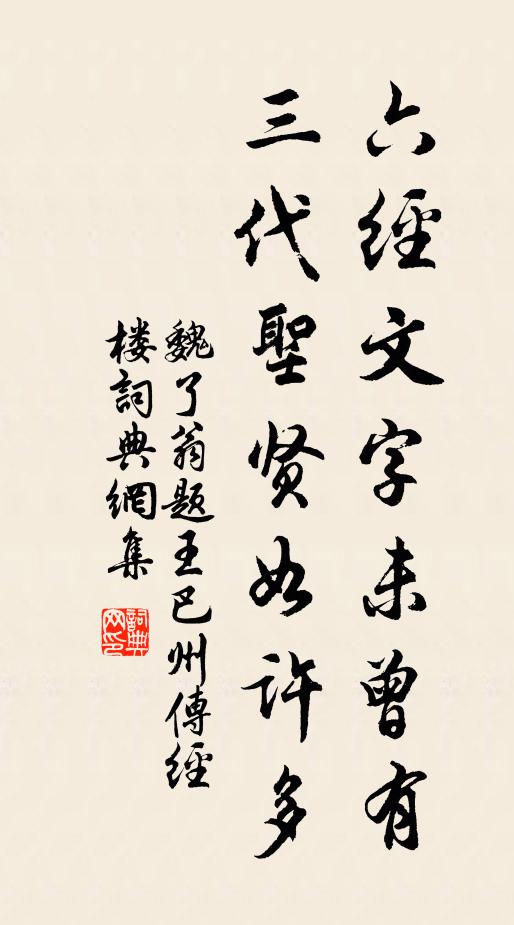 六經文字未曾有
三代聖贤如许多
魏了翁题王巴州傳經
楼詞典網集
詞典网印